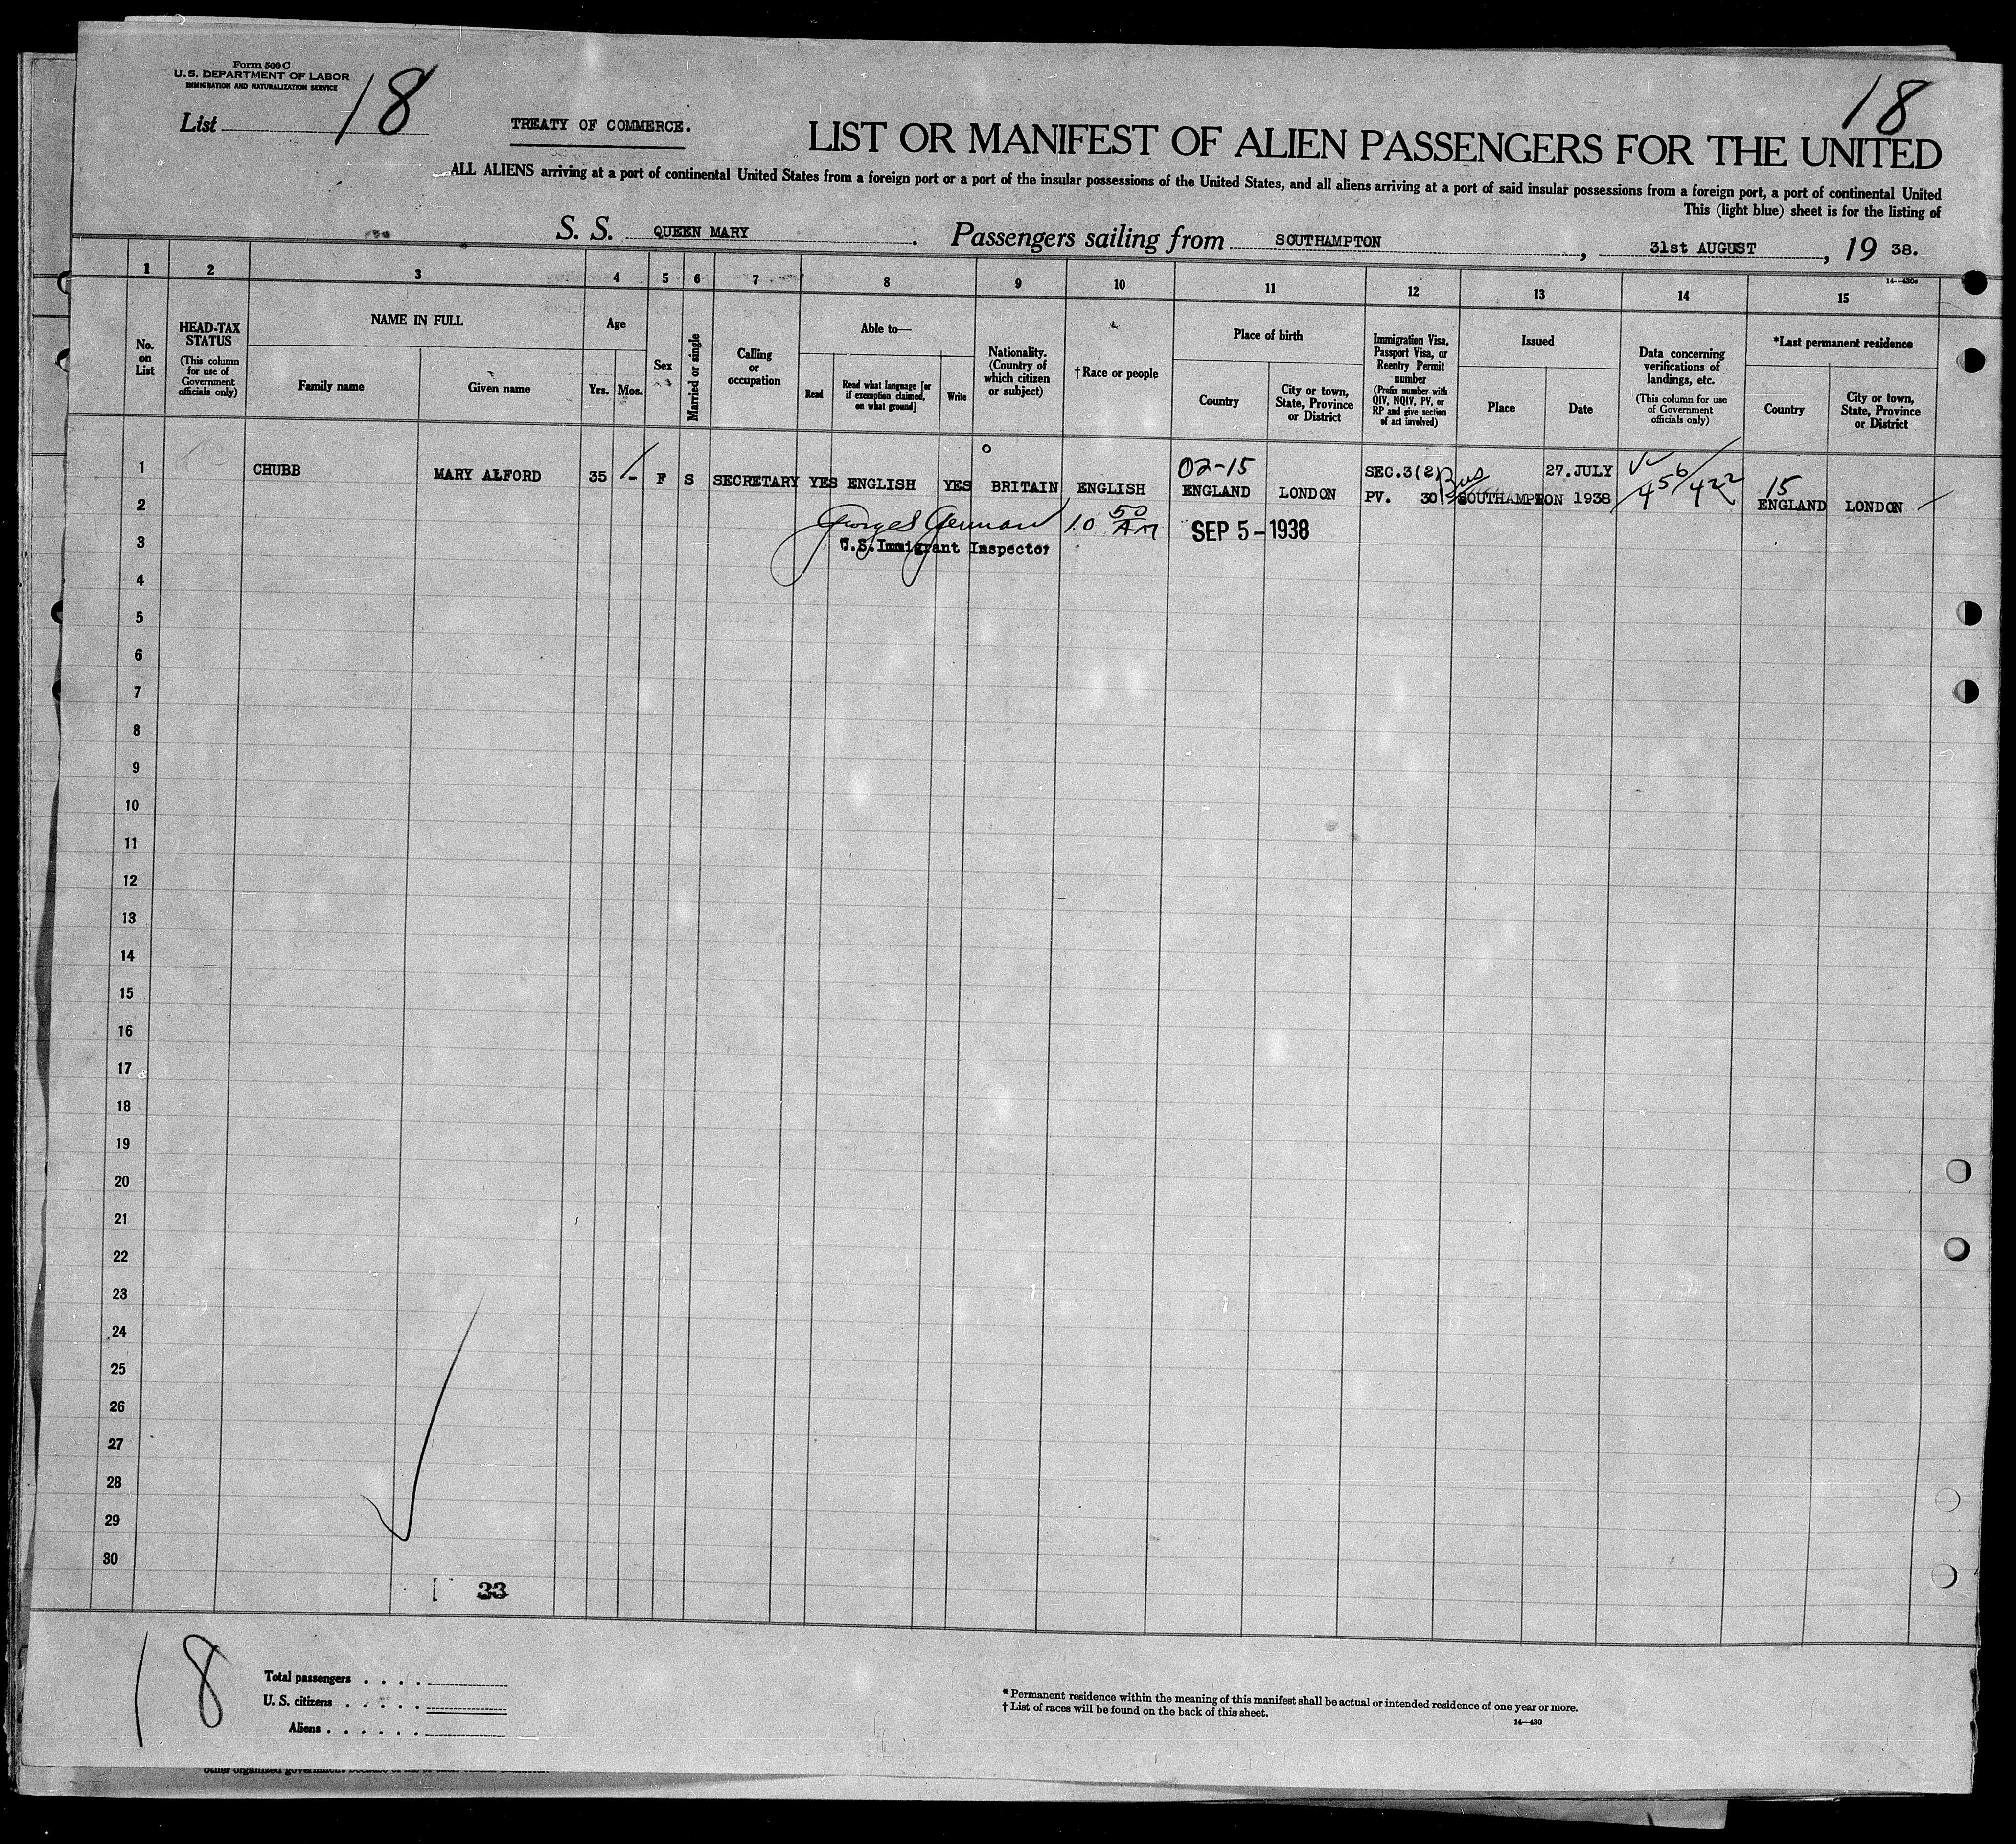 Form 500 C
U.S. DEPARTMENT OF LABOR
IMMIGRATION AND NATURALIZATION SERVICE
List 18
TREATY OF COMMERCE.
18
LIST OR MANIFEST OF ALIEN PASSENGERS FOR THE UNITED
ALL ALIENS arriving at a port of continental United States from a foreign port or a port of the insular possessions of the United States, and all aliens arriving at a port of said insular possessions from a foreign port, a port of continental United
This (light blue) sheet is for the listing of
S. S. QUEEN MARY. Passengers sailing from SOUTHAMPTON, 31st AUGUST, 19 38.
14—430c
1 2 3 4 5 6 7 8 9 10 11 12 13 14 15
No. on List
HEAD-TAX STATUS
(This column for use of Government officials only)
NAME IN FULL
Family name
Given name
Age
Yrs.
Mos.
Sex
Married or single
Calling or occupation
Able to—
Read
Read what language [or if exemption claimed, on what ground]
Write
Nationality. (Country of which citizen or subject)
†Race or people
Place of birth
Country
City or town, State, Province or District
Immigration Visa, Passport Visa, or Reentry Permit number
(Prefix number with QIV, NQIV, PV, or RP and give section of act involved)
Issued
Place
Date
Data concerning verifications of landings, etc.
(This column for use of Government officials only)
*Last permanent residence
Country
City or town, State, Province or District
02-15
SEC.3(2) Bus 27.JULY
456/422
15
1 CHUBB MARY ALFORD 35 - F S SECRETARY YES ENGLISH YES BRITAIN ENGLISH ENGLAND LONDON PV. 30 SOUTHAMPTON 1938 ENGLAND LONDON
2
George S German 10 50 AM SEP 5 - 1938
3
U.S. Immigrant Inspector
4
5
6
7
8
9
10
11
12
13
14
15
16
17
18
19
20
21
22
23
24
25
26
27
28
29
30
33
18
Total passengers . . . .
U. S. citizens . . . . .
Aliens . . . . . .
* Permanent residence within the meaning of this manifest shall be actual or intended residence of one year or more.
† List of races will be found on the back of this sheet.
14—430